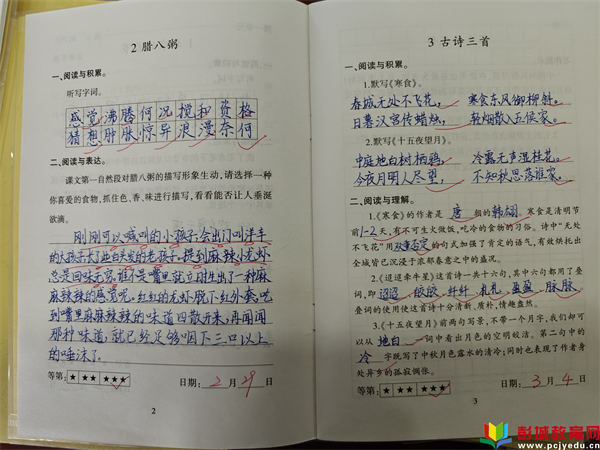 2 腊八粥
一、阅读与积累。
听写字词。
感觉沸腾何况搅和资格
猜想肿胀惊异浪漫奈何
二、阅读与表达。
课文第一自然段对腊八粥的描写形象生动，请选择一种
你喜爱的食物，抓住色、香、味进行描写，看看能否让人垂涎
欲滴。
刚刚可以喊叫的小孩子，会出门叫洋车
的大孩子，提到麻辣小龙虾
总是回味无穷，嘴里就立刻生出了一种麻
麻辣辣的感觉呢。红红的龙虾脱下红外套，吃
到嘴里麻麻辣辣的味道四散开来，再闻闻
那种味道，就已经足够咽下三口以上
的唾沫了。
等第： ★★★ ★★★ ★★★
日期：2月29日
2
3 古诗三首
一、阅读与积累。
1.默写《寒食》。
春城无处不飞花， 寒食东风御柳斜。
日暮汉宫传蜡烛， 轻烟散入五侯家。
2.默写《十五夜望月》。
中庭地白树栖鸦， 冷露无声湿桂花。
今夜月明人尽望， 不知秋思落谁家。
二、阅读与理解。
1.《寒食》的作者是 唐 朝的韩翃。寒食是清明节
前1-2天，有不可生火做饭，吃冷的食物的习俗。诗中“无处
不飞花”用双重否定的句式加强了肯定的语气，有效烘托出
全城皆已沉浸于浓郁春意之中的盛况。
2.《迢迢牵牛星》这首诗一共十六句，其中六句都用了叠
词，即 迢迢、皎皎、纤纤、札札、盈盈、脉脉。
叠词的使用使这首诗十分清丽、质朴，情趣盎然。
3.《十五夜望月》前两句写景，不带一个月字，我们却可
以从 地白 一词中看出月色的空明皎洁。第二句中的
冷 字既写了中秋月色露水的清冷；同时也表现了作者身
处异乡的孤寂惆怅。
等第： ★★★ ★★★ ★★★
日期：3月4日
3
彭城教育网
www.pcjyedu.cn